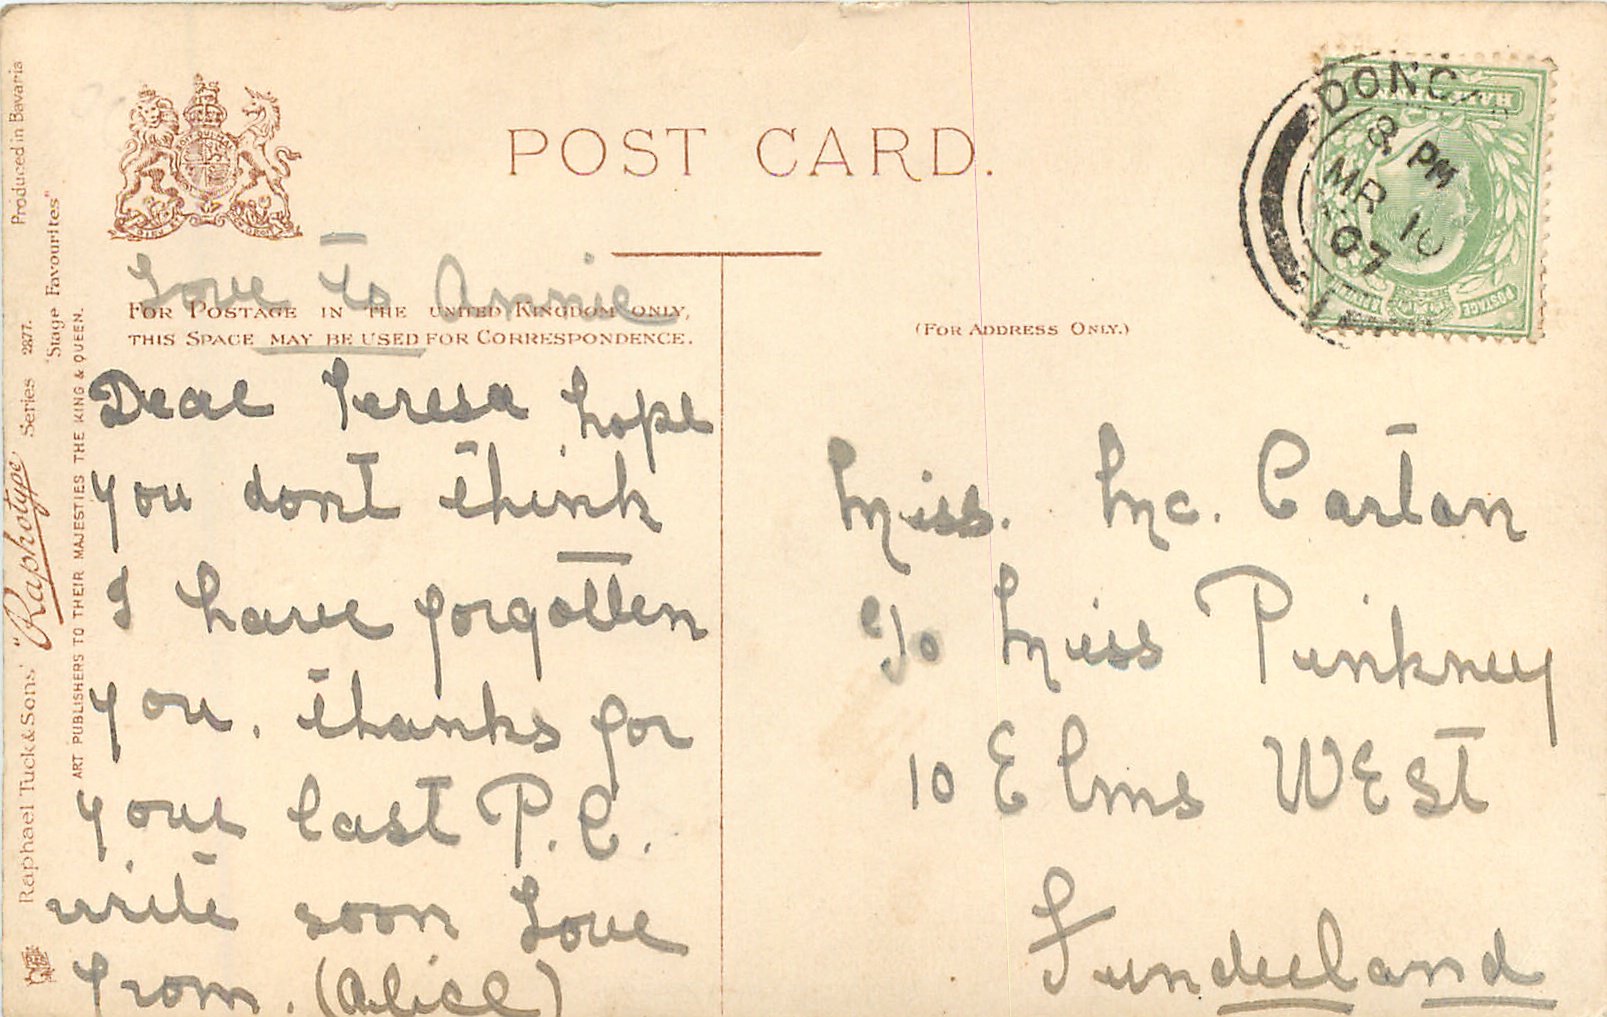 POST CARD.
Love to Annie
FOR POSTAGE IN THE UNITED KINGDOM ONLY,
THIS SPACE MAY BE USED FOR CORRESPONDENCE.
Dear Teresa hope
you dont think
I have forgotten
you. thanks for
your last P.C.
write soon Love
from. (Alice)
(FOR ADDRESS ONLY.)
Miss. Mc. Cartan
c/o Miss Pinkney
10 Elms WEst
Sunderland
DONC
8 PM
MR 10
07
HALF
POSTAGE
Raphael Tuck & Sons' "Raphotype" Series 2877. Produced in Bavaria
"Stage Favourites"
ART PUBLISHERS TO THEIR MAJESTIES THE KING & QUEEN.